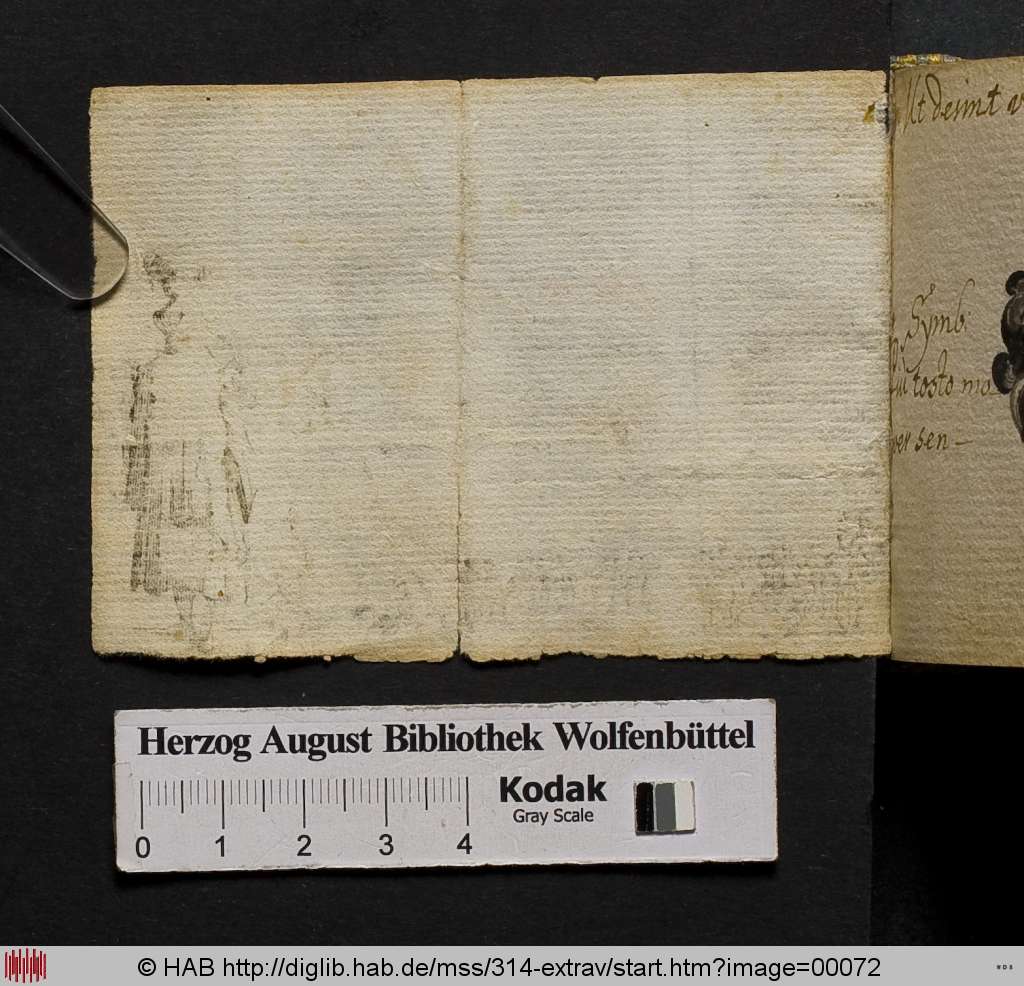 Ut desint v
Symb:
tosto mo
ver sen –
Herzog August Bibliothek Wolfenbüttel
Kodak
Gray Scale
0 1 2 3 4
© HAB http://diglib.hab.de/mss/314-extrav/start.htm?image=00072